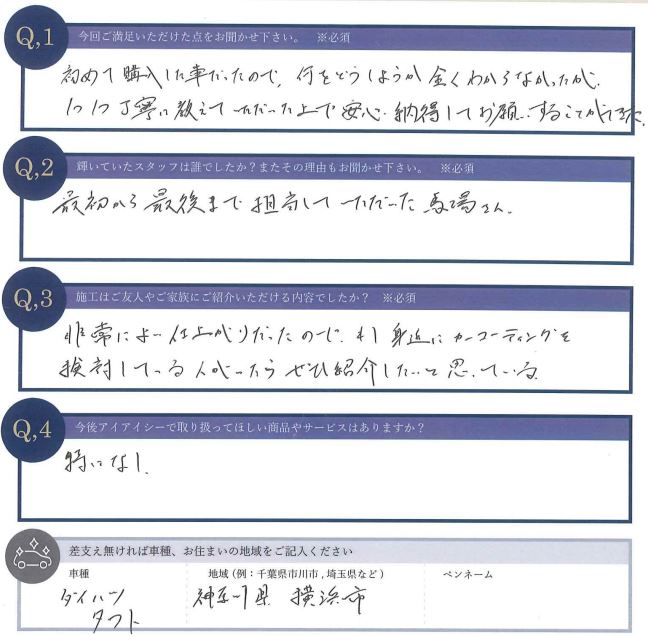 Q,1
今回ご満足いただけた点をお聞かせ下さい。 ※必須
初めて購入した車だったので、何をどうしようか全くわからなかったが、
1つ1つ丁寧に教えていただいた上で安心・納得してお願いすることができた。
Q,2
輝いていたスタッフは誰でしたか？またその理由もお聞かせ下さい。 ※必須
最初から最後まで担当していただいた馬場さん。
Q,3
施工はご友人やご家族にご紹介いただける内容でしたか？ ※必須
非常によい仕上がりだったので、もし身近にカーコーティングを
検討している人がいたらぜひ紹介したいと思っている。
Q,4
今後アイアイシーで取り扱ってほしい商品やサービスはありますか？
特になし。
差支え無ければ車種、お住まいの地域をご記入ください
車種 地域 (例：千葉県市川市 , 埼玉県など) ペンネーム
ダイハツ 神奈川県 横浜市
タフト